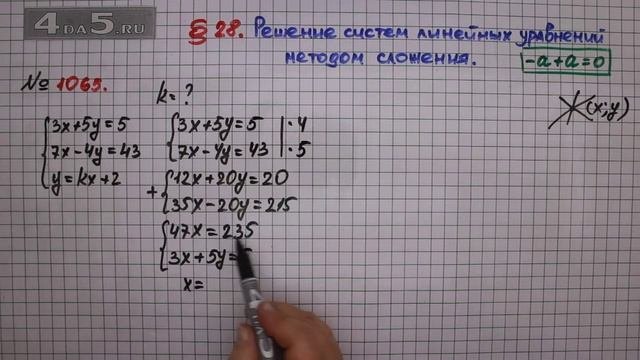 4DA5.RU
§ 28. Решение систем линейных уравнений
методом сложения. -a+a=0
№ 1065.
k=?
3x+5y=5
7x-4y=43
y=kx+2
3x+5y=5 | ·4
7x-4y=43 | ·5
+ 12x+20y=20
35x-20y=215
47x=235
3x+5y=
x=
(x;y)